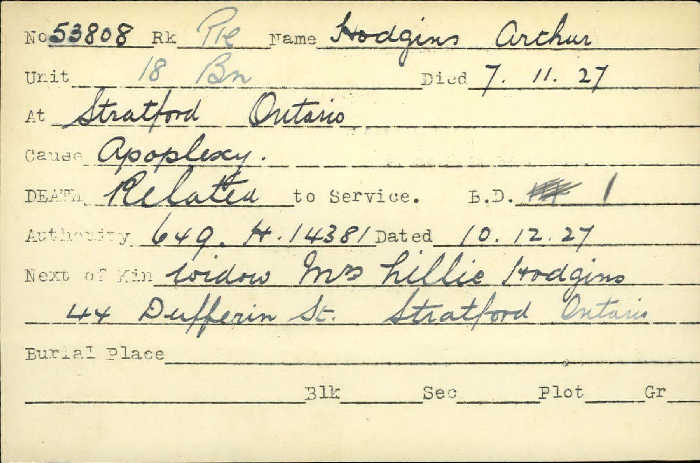 No 53808 Rk Pte Name Hodgins Arthur
Unit 18 Bn Died 7. 11. 27
At Stratford Ontario
Cause Apoplexy.
DEATH Related to Service. B.D. 1
Authority 649. H. 14381 Dated 10. 12. 27
Next of Kin Widow Mrs Lillie Hodgins
44 Dufferin St. Stratford Ontario
Burial Place
Blk Sec Plot Gr